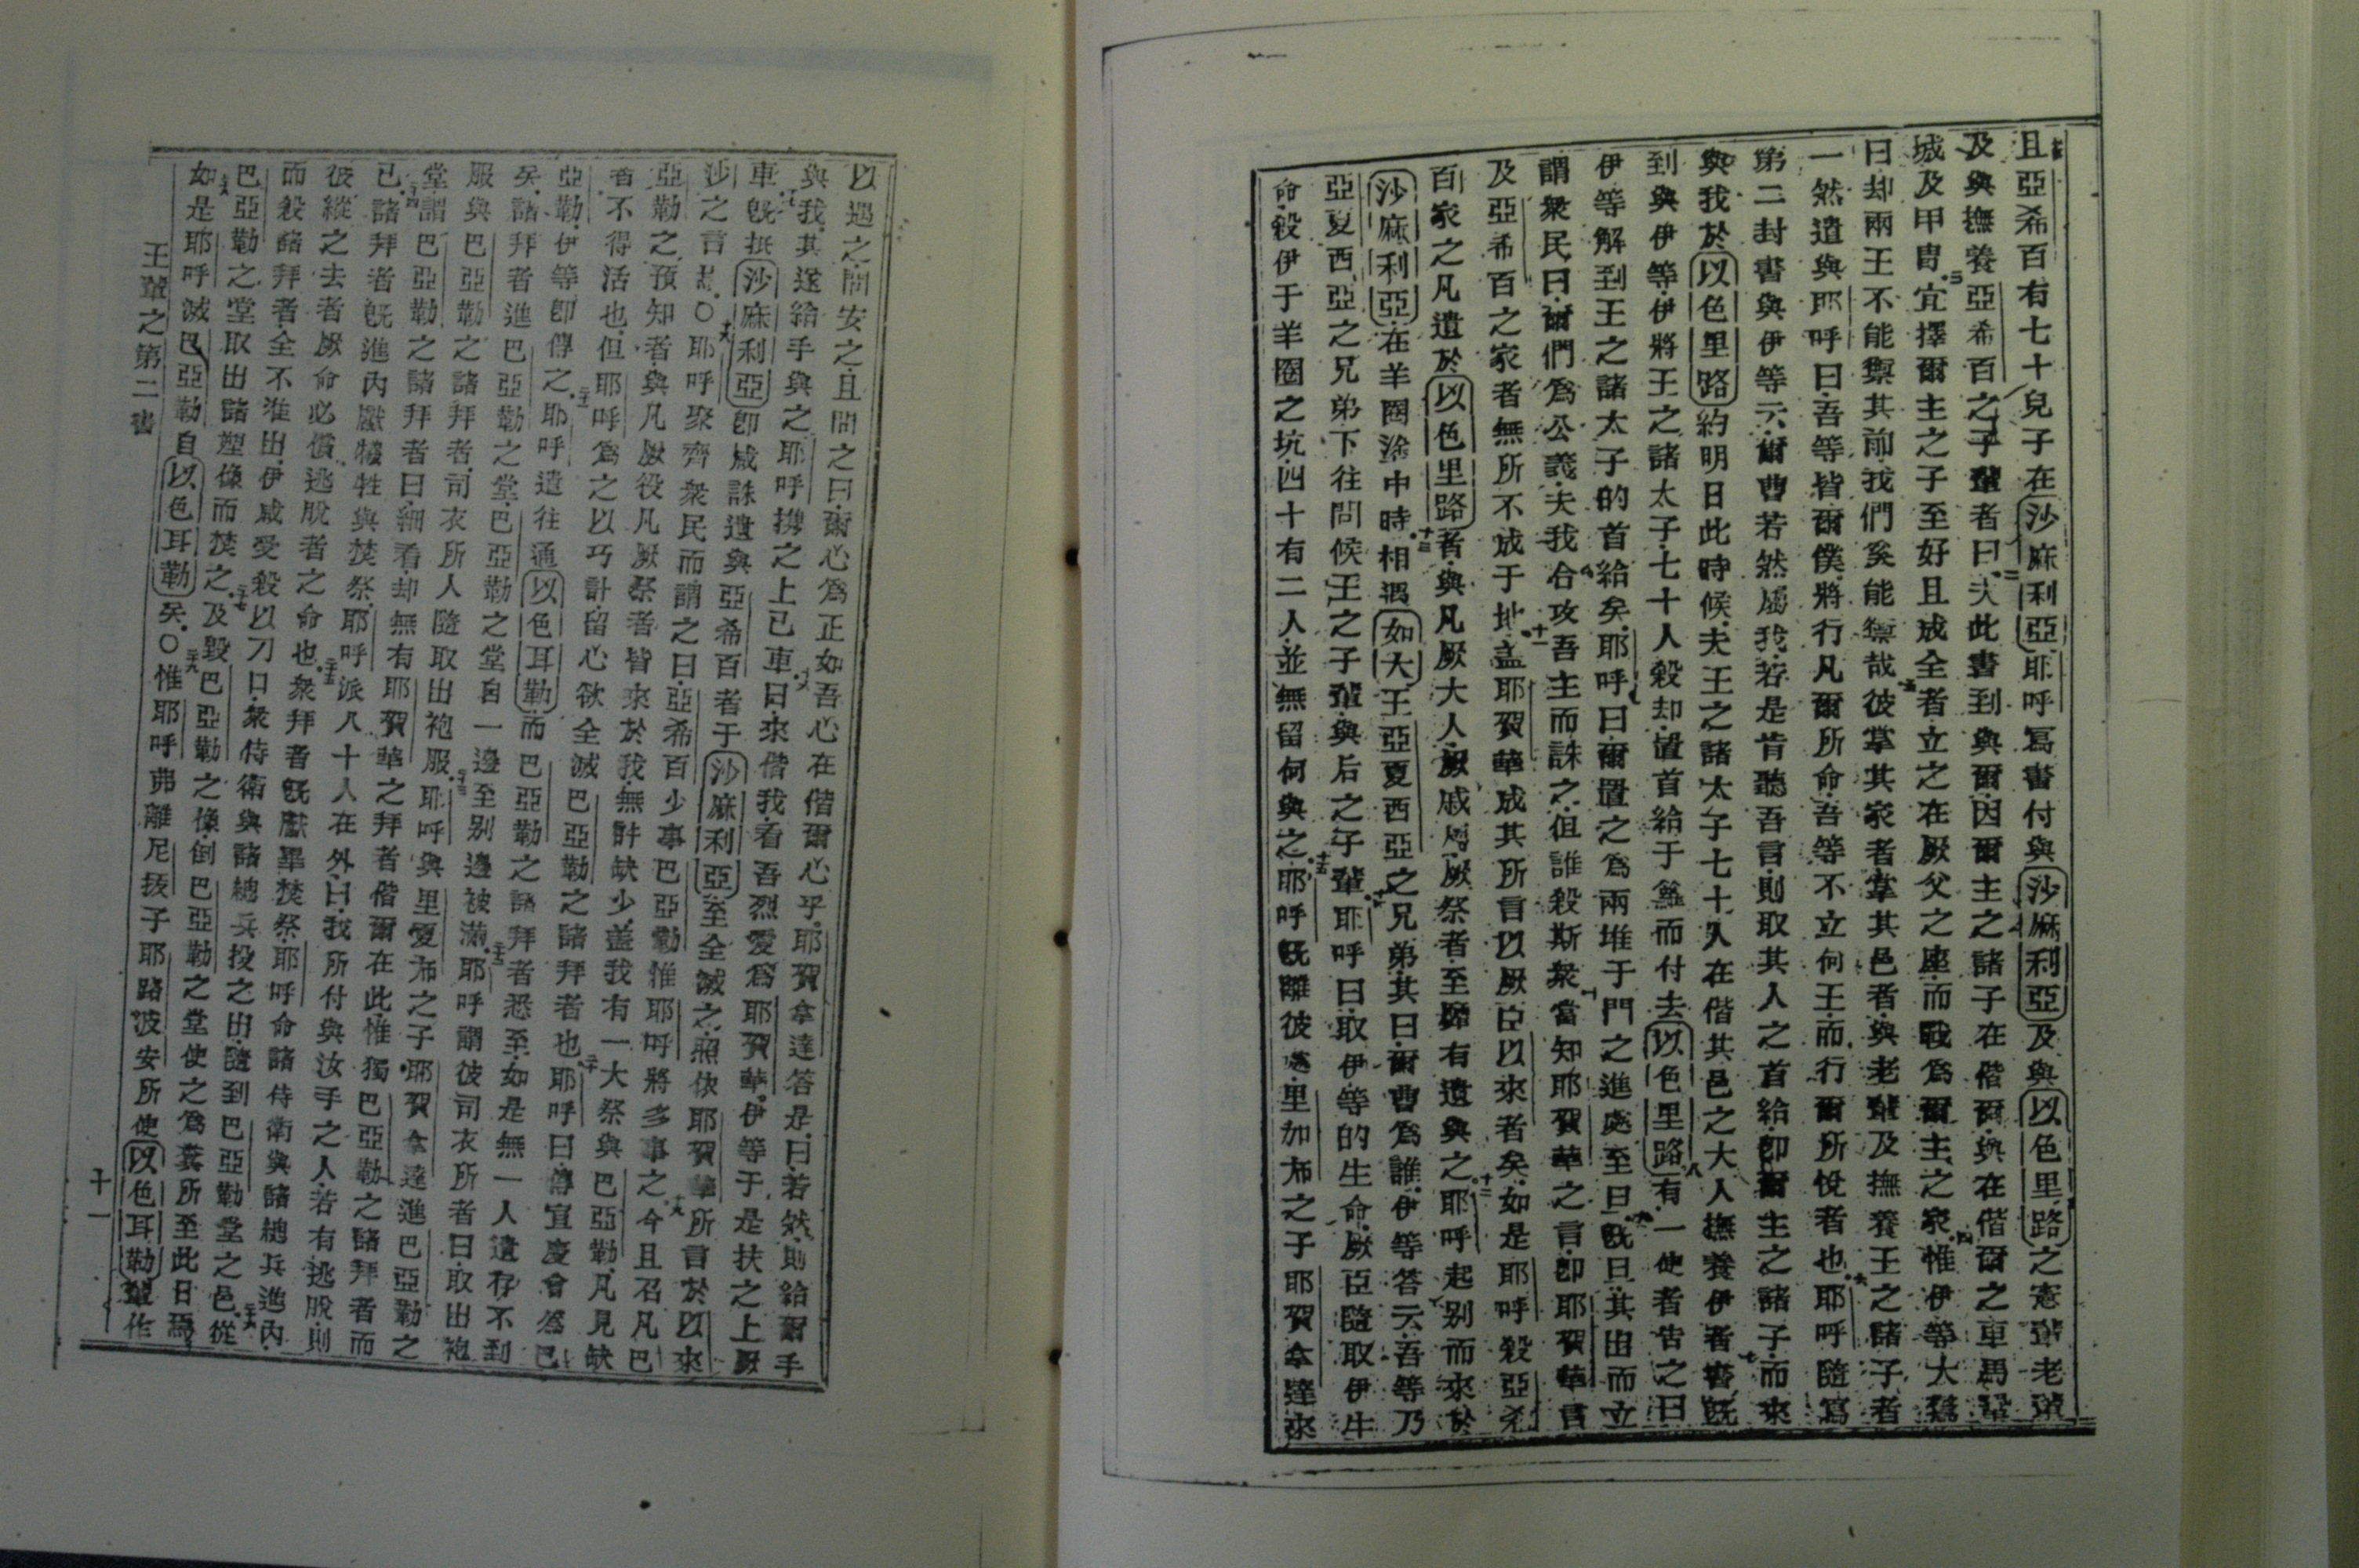 且亞希百有七十兒子在沙麻利亞耶呼寫書付與沙麻利亞及與以色里路之憲輩老輩
及與撫養亞希百之子輩者曰二夫此書到與爾因爾主之諸子在偕爾與在偕爾之車馬鞏
城及甲胄三宜擇爾主之子至好且成全者立之在厥父之座而戰為爾主之家四惟伊等大懼
曰却兩王不能禦其前我們奚能禦哉五彼掌其家者掌其邑者與老輩及撫養王之諸子者
一然遣與耶呼曰吾等皆爾僕將行凡爾所命吾等不立何王而行爾所悅者也六耶呼隨寫
第二封書與伊等云爾曹若然屬我若是肯聽吾言則取其人之首給卽爾主之諸子而來
與我於以色里路約明日此時候夫王之諸太子七十人在偕其邑之大人撫養伊者七書既
到與伊等伊將王之諸太子七十人殺却置首給于籃而付去以色里路八有一使者告之曰
伊等解到王之諸太子的首給矣耶呼曰爾置之為兩堆于門之進處至旦九既旦其出而立
謂衆民曰爾們為公義夫我合攻吾主而誅之但誰殺斯衆十當知耶賀華之言卽耶賀華言
及亞希百之家者無所不成于地蓋耶賀華成其所言以厥臣以來者矣十一如是耶呼殺亞希
百家之凡遺於以色里路者與凡厥大人厥戚屬厥祭者至歸有遺與之十二耶呼起别而來於
沙麻利亞在羊圈途中時十三相遇如大王亞夏西亞之兄弟其曰爾曹為誰伊等答云吾等乃
亞夏西亞之兄弟下往問候王之子輩與后之子輩十四耶呼曰取伊等的生命厥臣隨取伊生
命殺伊于羊圈之坑四十有二人並無留何與之十五耶呼既離彼處里加布之子耶賀拿達來
以遇之問安之且問之曰爾心為正如吾心在偕爾心乎耶賀拿達答是曰若然則給爾手
與我其遂給手與之耶呼攜之上己車十六曰來偕我看吾烈愛為耶賀華伊等于是扶之上厥
車十七既抵沙麻利亞卽咸誅遺與亞希百者于沙麻利亞至全滅之照依耶賀華所言於以來
沙之言○十八耶呼聚齊衆民而謂之曰亞希百少事巴亞勒惟耶呼將多事之十九今且召凡巴
亞勒之預知者與凡厥役凡厥祭者皆來於我無許缺少蓋我有一大祭與巴亞勒凡見缺
者不得活也但耶呼為之以巧計留心欲全滅巴亞勒之諸拜者也二十耶呼曰傳宣慶會為巴
亞勒伊等卽傳之二十一耶呼遣往通以色耳勒而巴亞勒之諸拜者悉至如是無一人遺存不到
矣諸拜者進巴亞勒之堂巴亞勒之堂自一邊至别邊被滿二十二耶呼謂彼司衣所者曰取出袍
服與巴亞勒之諸拜者司衣所人隨取出袍服二十三耶呼與里愛布之子耶賀拿達進巴亞勒之
堂謂巴亞勒之諸拜者曰細看却無有耶賀華之拜者偕爾在此惟獨巴亞勒之諸拜者而
已二十四諸拜者既進內獻犧牲與焚祭耶呼派八十人在外曰我所付與汝手之人若有逃脫則
彼縱之去者厥命必償逃脫者之命也二十五衆拜者既獻畢焚祭耶呼命諸侍衛與諸總兵進內
而殺諸拜者全不准出伊咸受殺以刀口衆侍衛與諸總兵投之出隨到巴亞勒堂之邑二十六從
巴亞勒之堂取出諸塑像而焚之二十七及毀巴亞勒之像倒巴亞勒之堂使之為糞所至此日焉
二十八如是耶呼滅巴亞勒自以色耳勒矣○二十九惟耶呼弗離尼拔子耶路波安所使以色耳勒輩作
王輩之第二書
十一